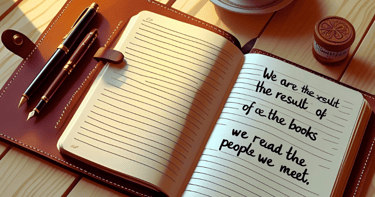 We are the result
the result of
of œ the books
we read the
people we meet.